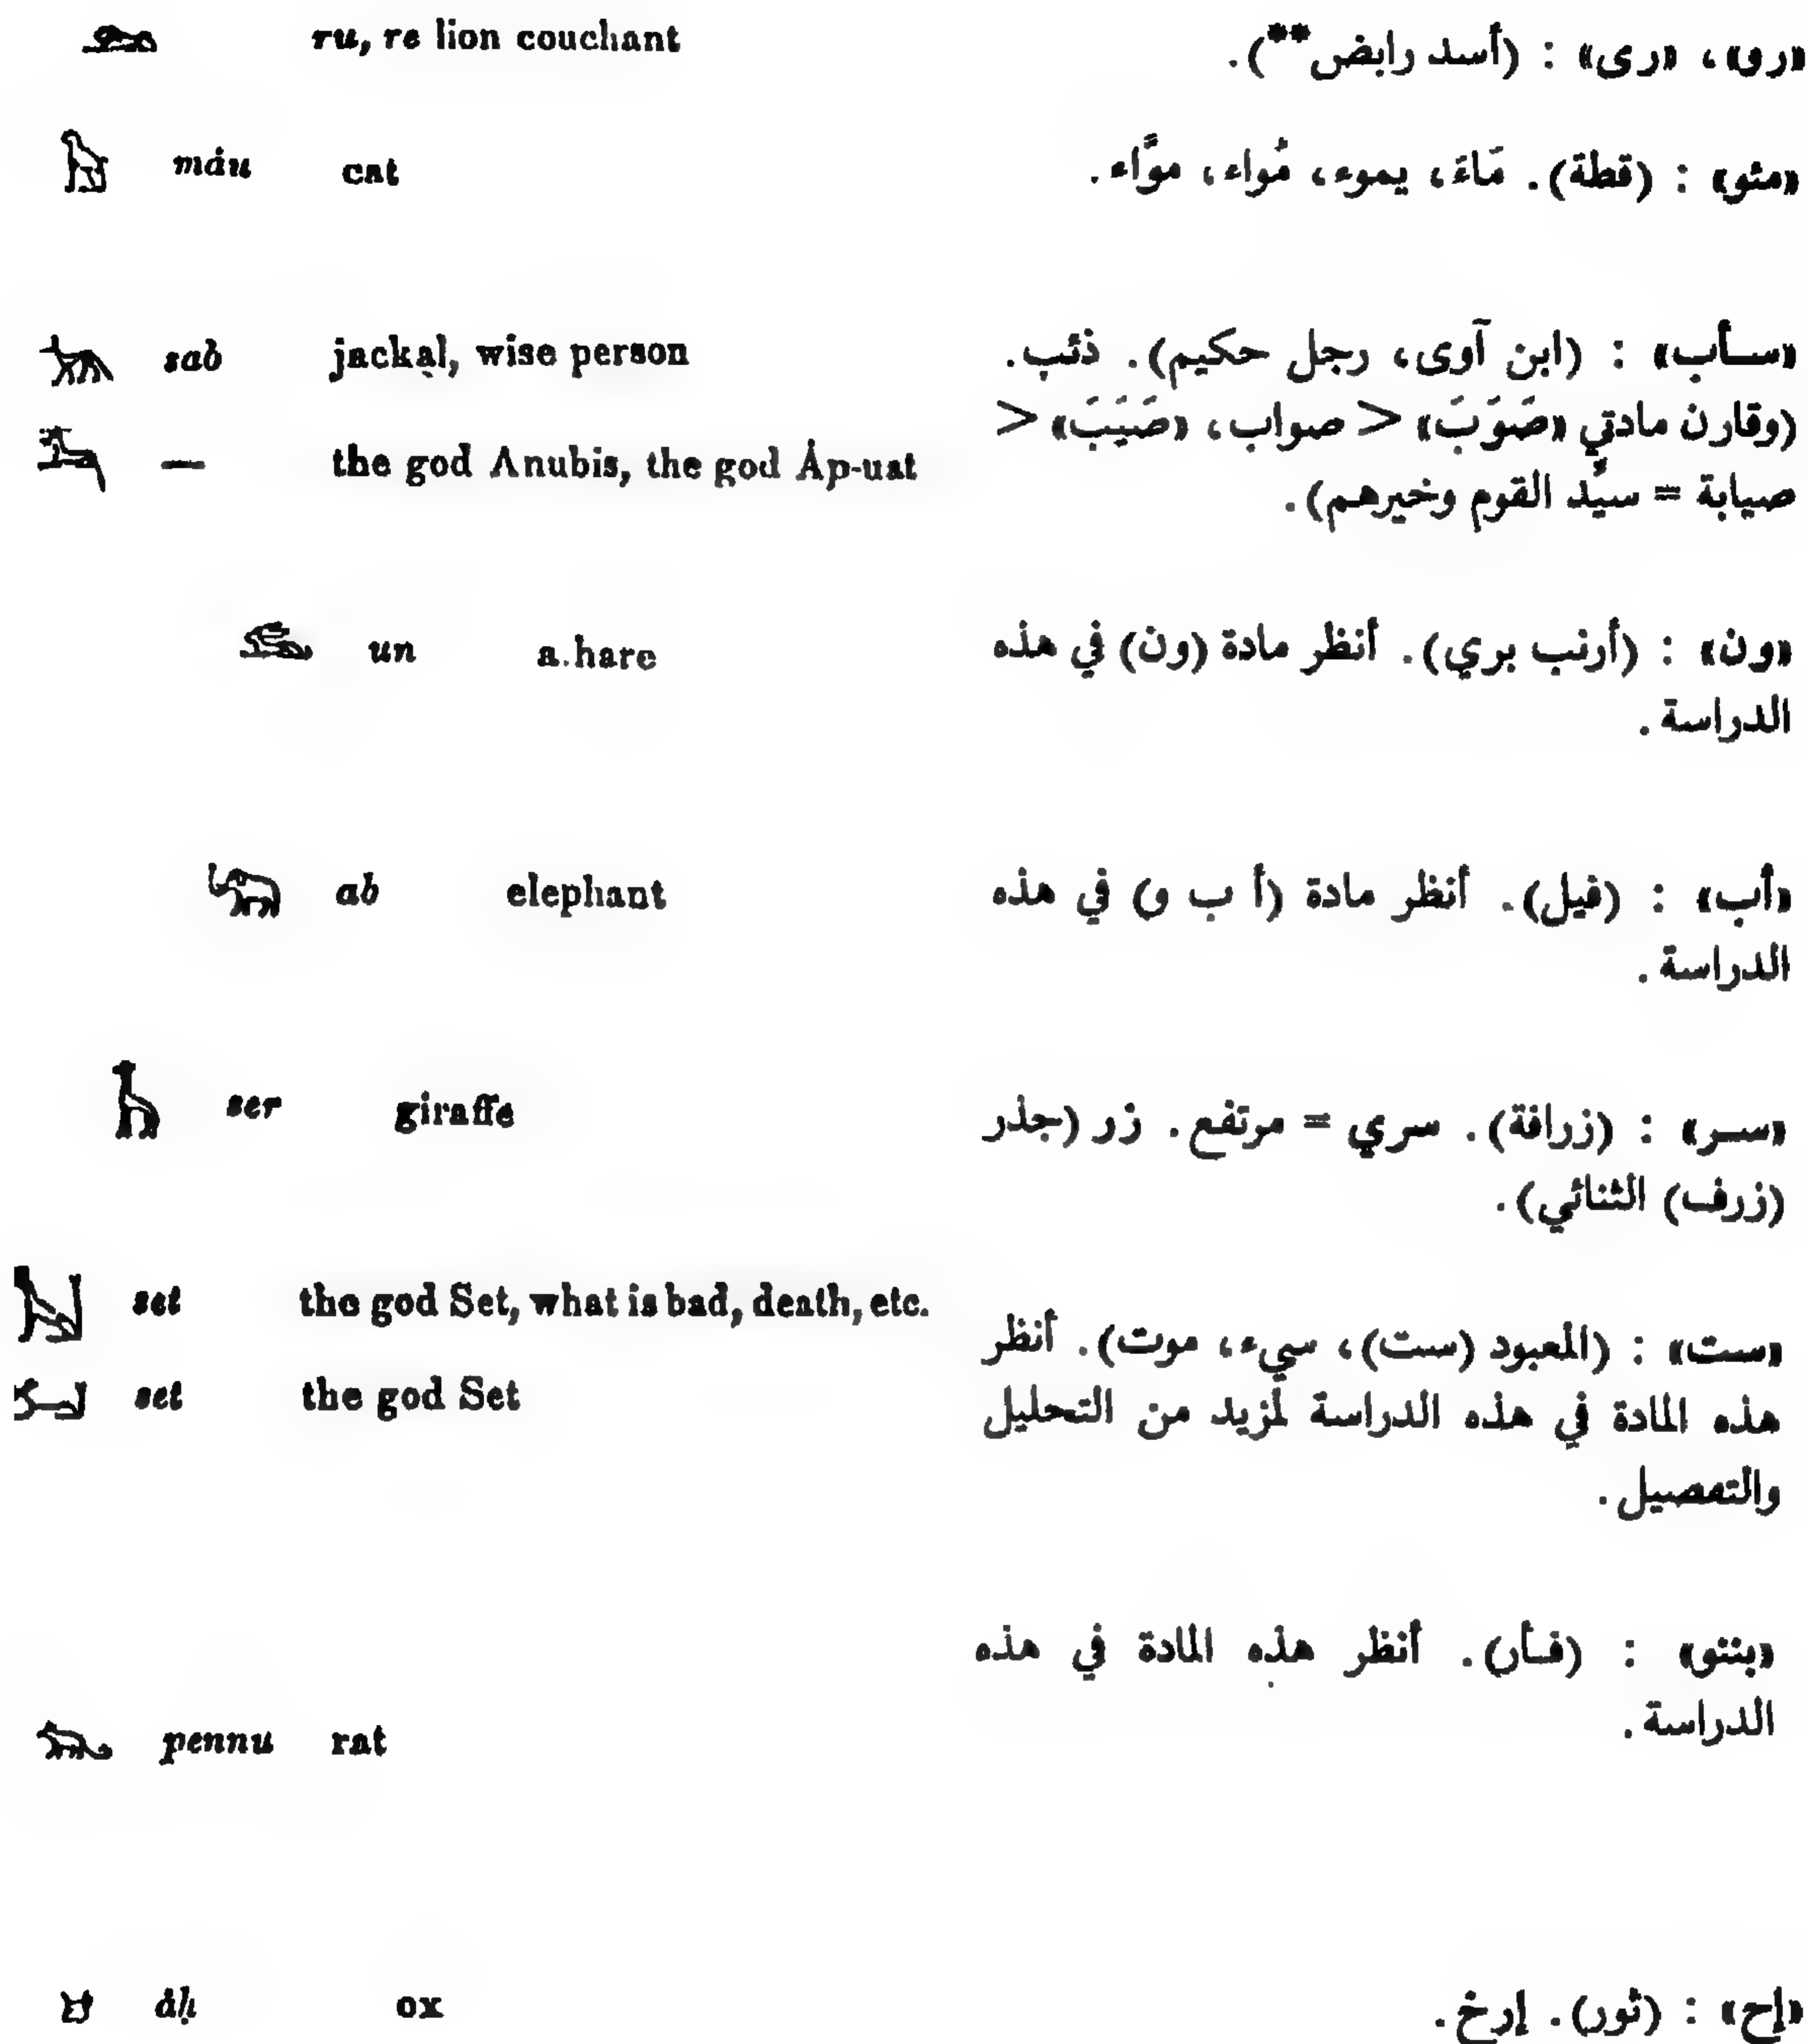 ru, re lion couchant
«رو»، «رى» : (أسد رابض**).
máu cat
«مئو» : (قطة). مَاءَ، يموء، مُواء، موَّاء.
sab jackal, wise person
«سـأب» : (ابن آوى، رجل حكيم). ذئب.
— the god Anubis, the god Áp-uat
(وقارن مادتي «صَوَبَ» > صواب، «صَيَبَ» >
صيابة = سيِّد القوم وخيرهم).
un a hare
«ون» : (أرنب بري). أنظر مادة (ون) في هذه
الدراسة.
ab elephant
«أب» : (فيل). أنظر مادة (أ ب و) في هذه
الدراسة.
ser giraffe
«سـر» : (زرافة). سري = مرتفع. زر (جذر
(زرف) الثنائي).
set the god Set, what is bad, death, etc.
«ست» : (المعبود (ست)، سيء، موت). أنظر
set the god Set
هذه المادة في هذه الدراسة لمزيد من التحليل
والتفصيل.
«بننو» : (فـأر). أنظر هذه المادة في هذه
الدراسة.
pennu rat
áḥ ox
«إح» : (ثور). إرخ.